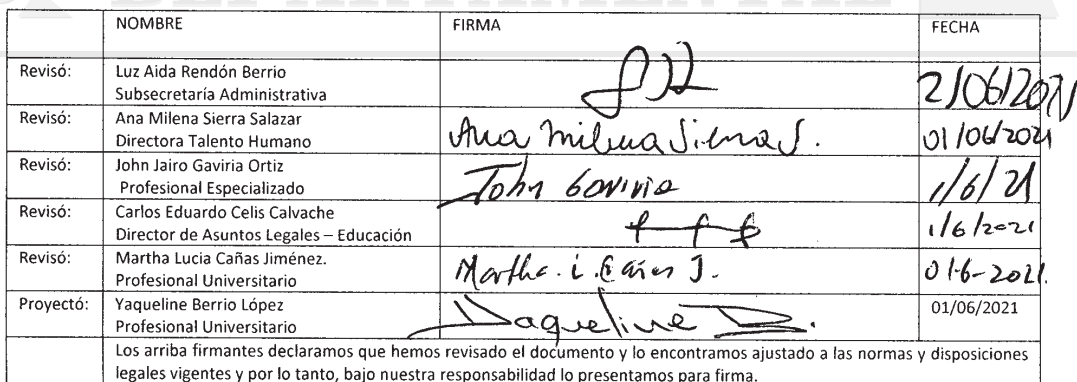 NOMBRE FIRMA FECHA
Revisó: Luz Aida Rendón Berrio
Subsecretaría Administrativa 2/06/2021
Revisó: Ana Milena Sierra Salazar
Directora Talento Humano Ana Milena Sierra S. 01/06/2021
Revisó: John Jairo Gaviria Ortiz
Profesional Especializado John Gaviria 1/6/21
Revisó: Carlos Eduardo Celis Calvache
Director de Asuntos Legales – Educación 1/6/2021
Revisó: Martha Lucia Cañas Jiménez.
Profesional Universitario Martha. L. Cañas J. 01-6-2021.
Proyectó: Yaqueline Berrio López 01/06/2021
Profesional Universitario Yaqueline B.
Los arriba firmantes declaramos que hemos revisado el documento y lo encontramos ajustado a las normas y disposiciones
legales vigentes y por lo tanto, bajo nuestra responsabilidad lo presentamos para firma.